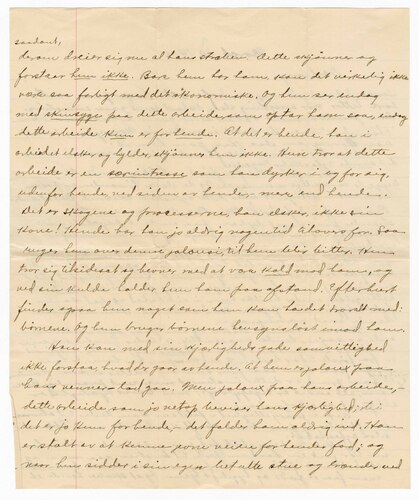 saadant,
derom dreier sig nu al hans stræben. Dette skjønner og
forstaar hun ikke. Bare hun har ham, kan det virkelig ikke
være saa farligt med det økonomiske. Og hun ser endog
med skinsyge paa dette arbeide, som optar ham saa, endog
dette arbeide kun er for hende. At det er hende, han i
arbeidet elsker og hylder, skjønner hun ikke. Hun tror at dette
arbeide er en særintresse som han dyrker i og for sig,
udenfor hende, ved siden av hende, mer end hende.
Det er skogene og processerne, han elsker, ikke sin
kone! Hende har han jo aldrig nogen tid tilovers for. Saa
suger hun over denne jalousi, til hun blir bitter. Hun
tror sig tilsidesat og hevner med at være kold mod ham, og
ved sin kulde holder hun ham paa afstand. Efterhvert
finder ogsaa hun noget som hun kan ha det travelt med:
børnene. Og hun bruger børnene hensynsløst imod ham.
Han kan med sin kjærligheds gode samvittighed
ikke forstaa, hvad der gaar av hende. At hun er jaloux paa
hans venner - lad gaa. Men jaloux paa hans arbeide, -
dette arbeide som jo netop beviser hans kjærlighed; ti
det er jo kun for hende, - det falder ham aldrig ind. Han
er stolt av at kunne jevne veien for hendes fod; og
naar hun sidder i sin egen betalte stue og brænder ved